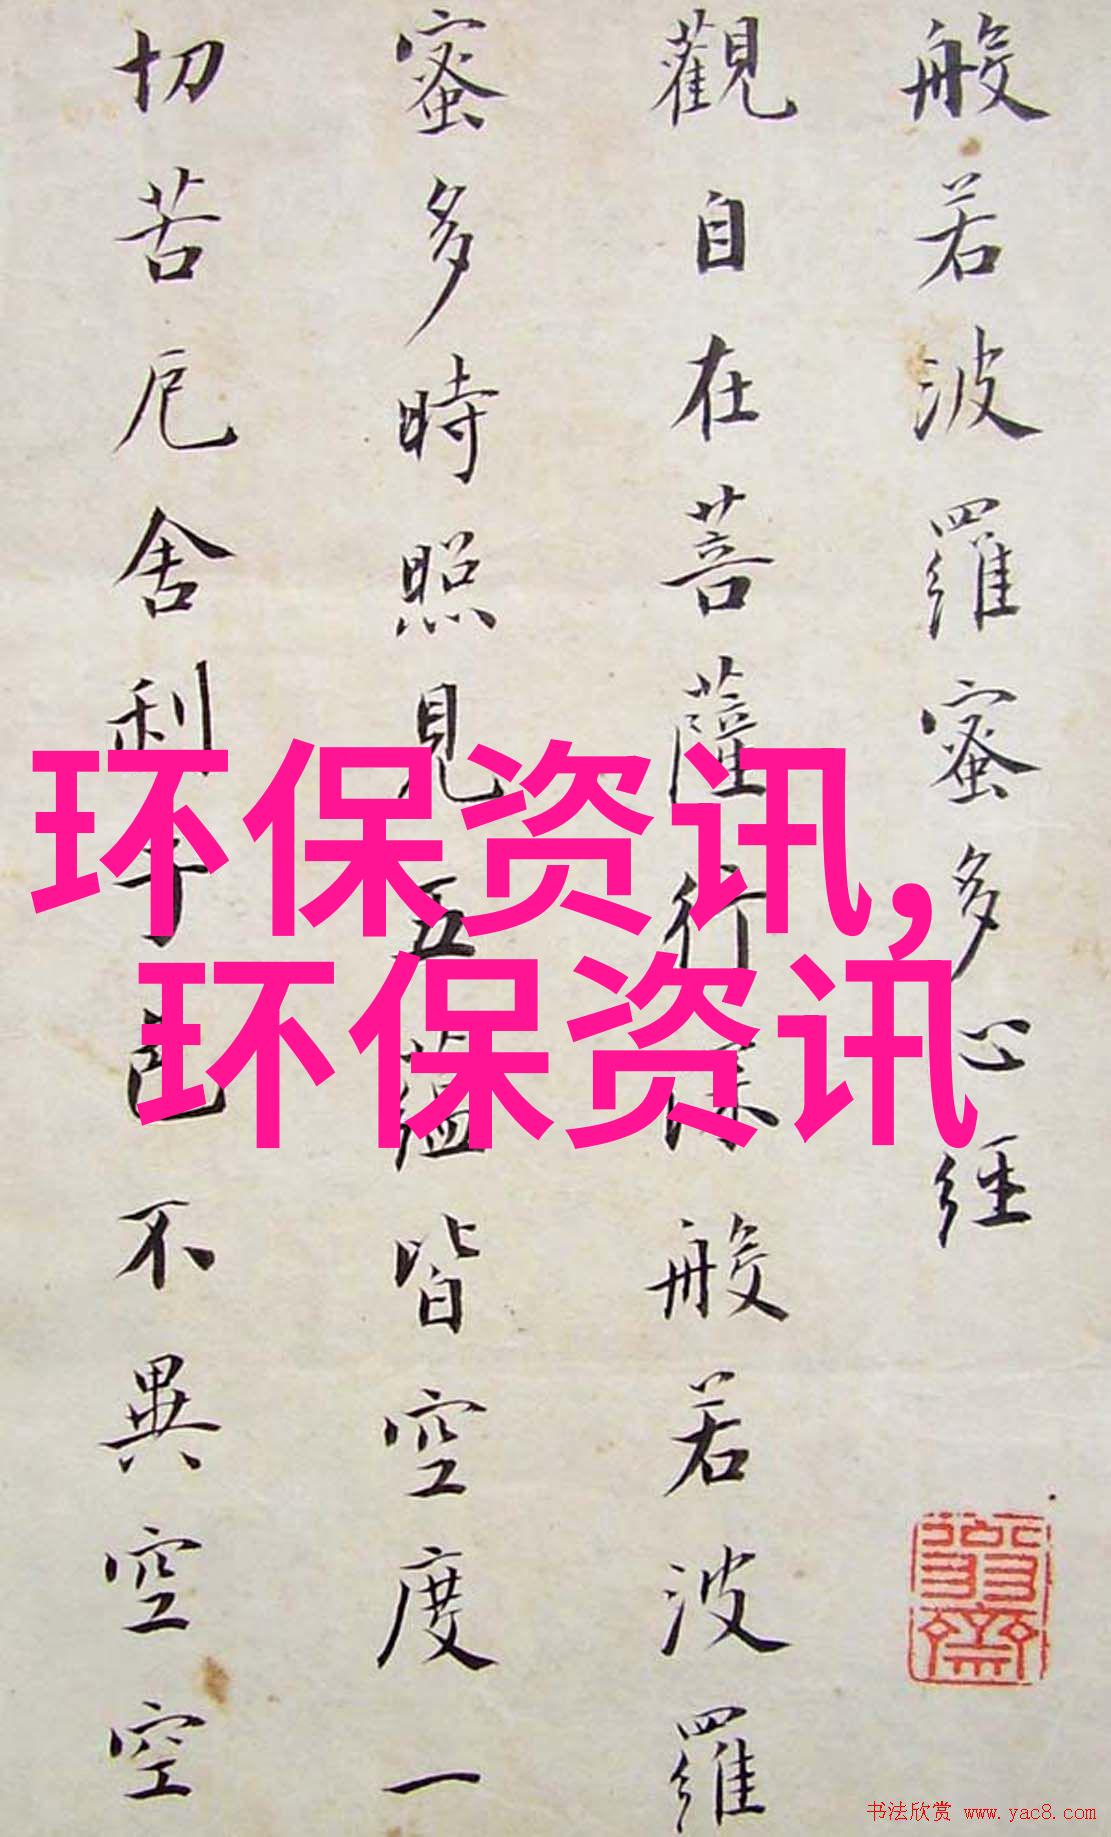 般若波羅蜜多心經
觀自在菩薩行深般若波羅
蜜多時照見五蘊皆空度一
切苦厄舍利子色不異空空
环保资讯,
环保资讯
书法欣赏 www.yac8.com